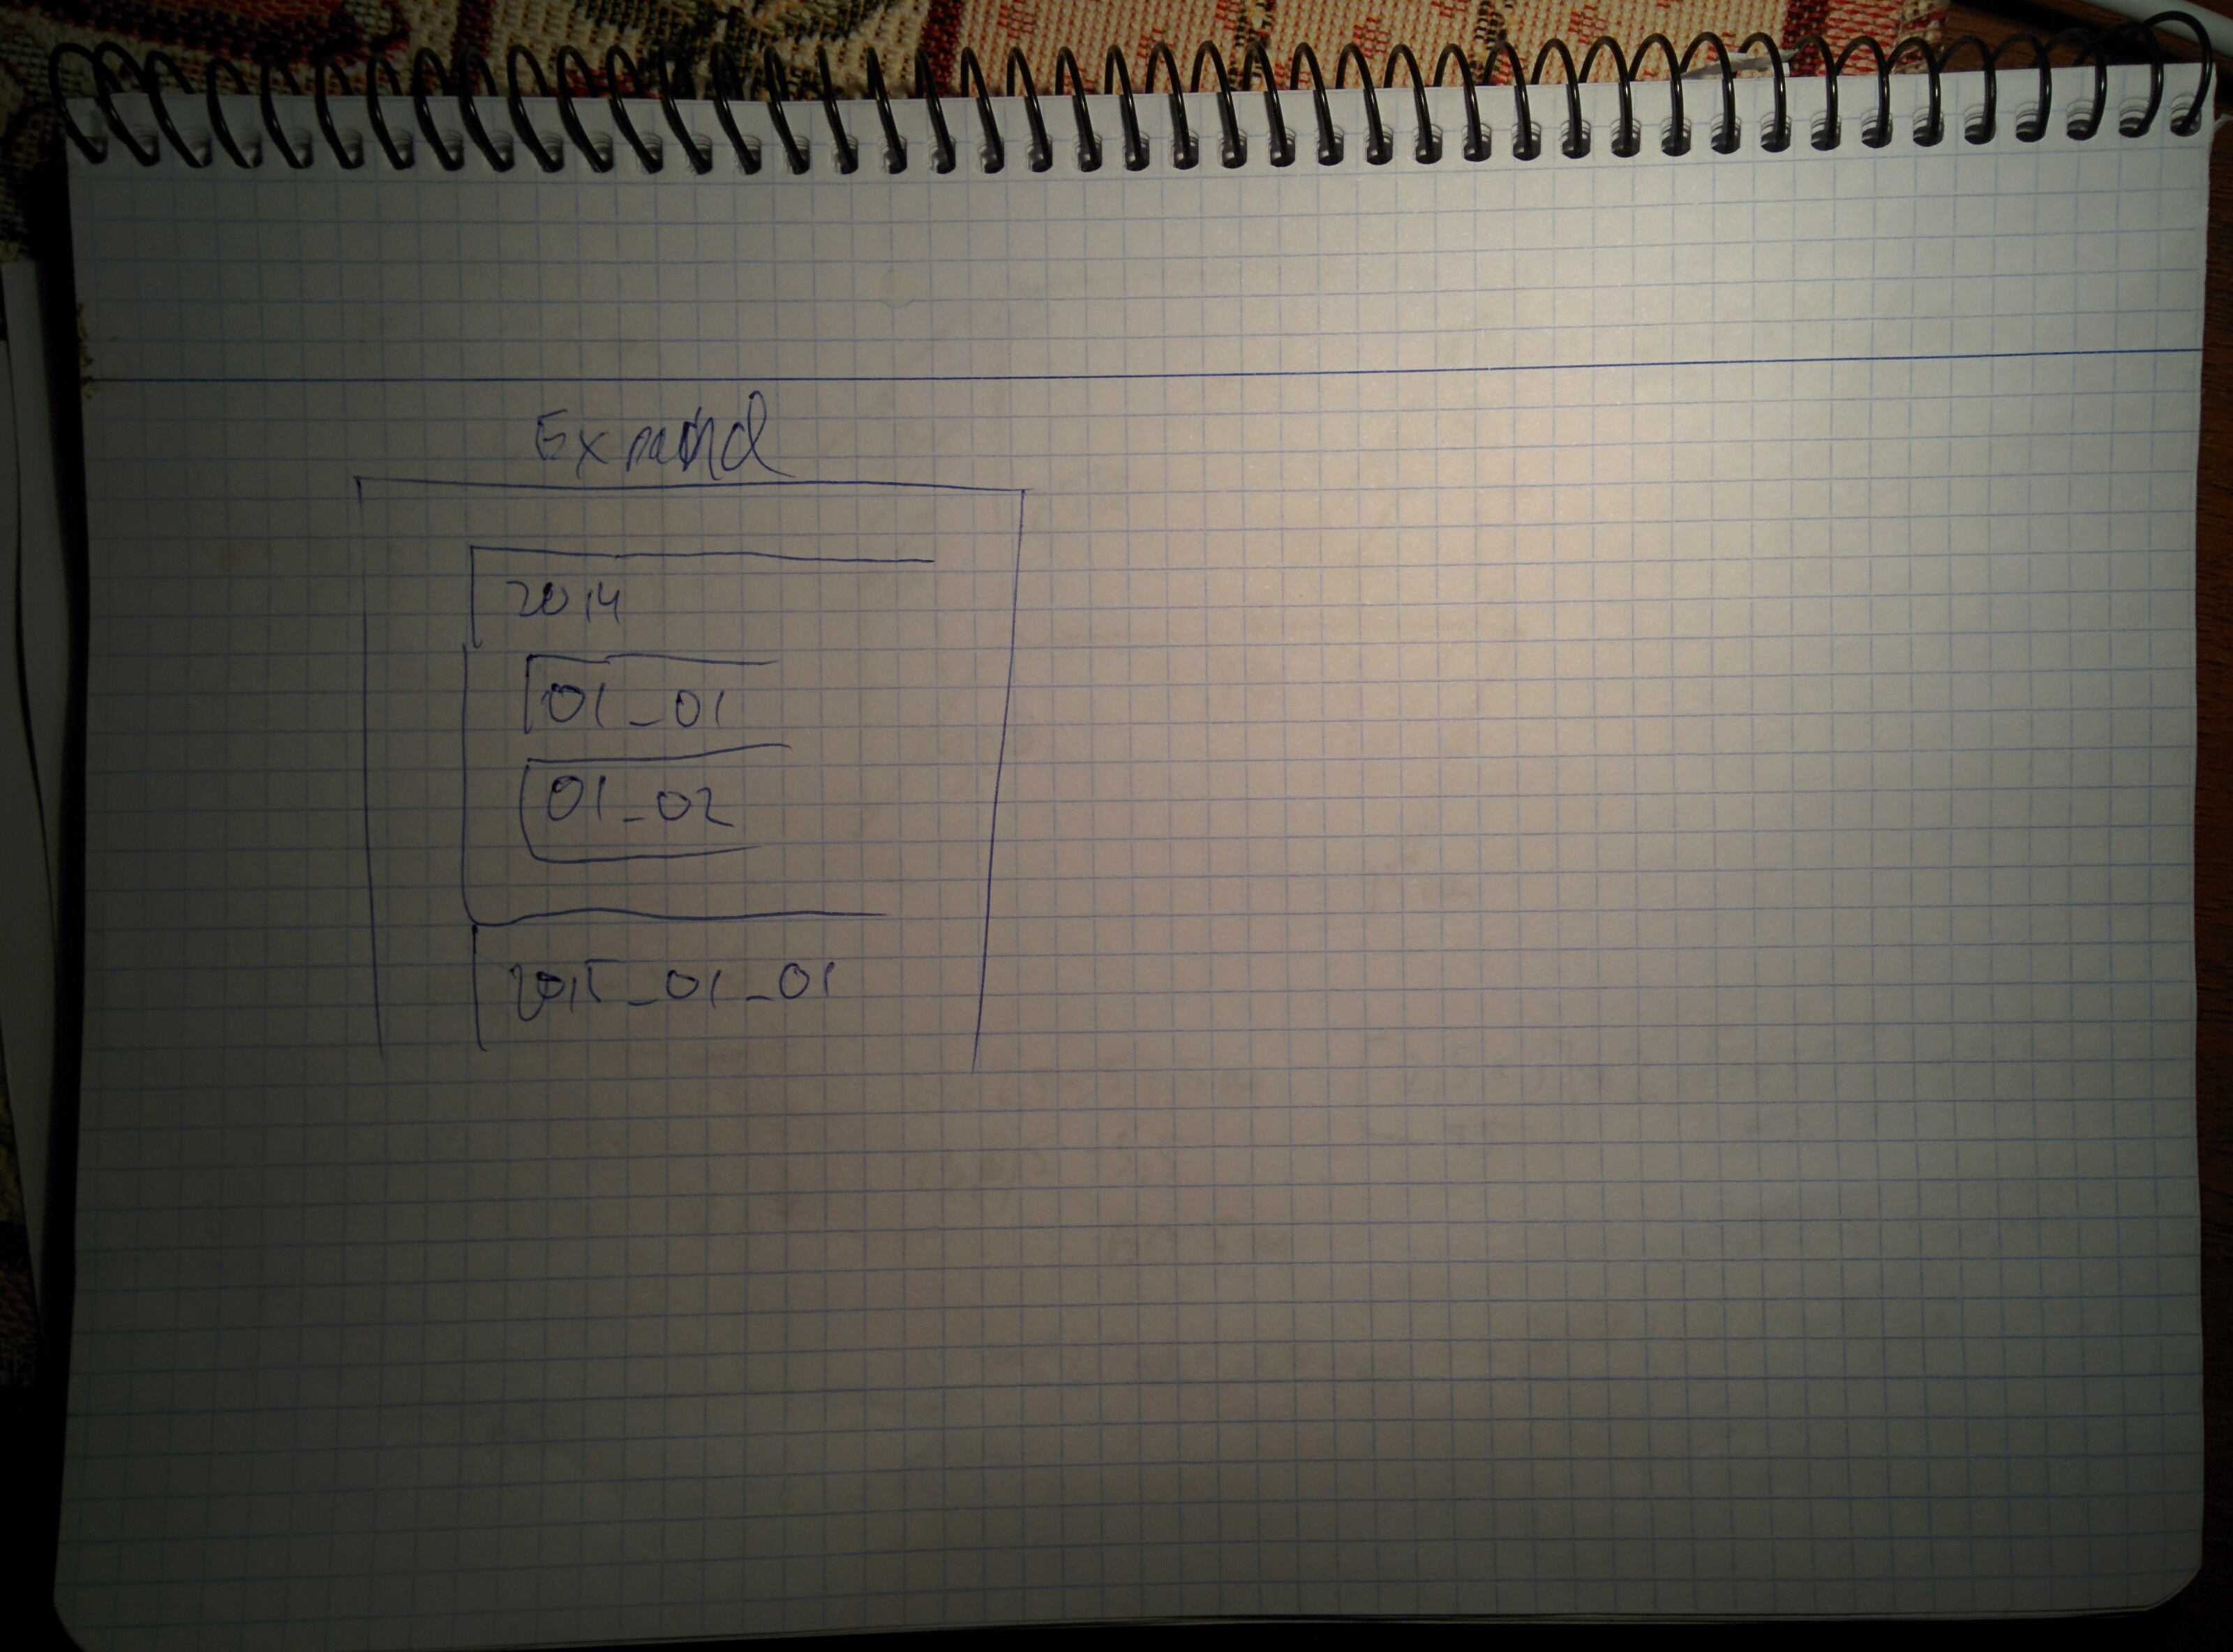 Expand
2014
01_01
01_02
2015_01_01